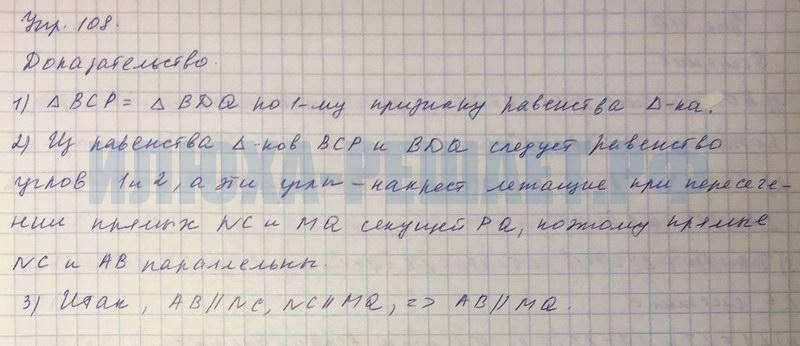 Упр. 108.
Доказательство.
1) △ BCP = △ BDQ по 1-му признаку равенства △-ка.
2) Из равенства △-ков BCP и BDQ следует равенство
углов 1 и 2, а эти углы – накрест лежащие при пересече-
нии прямых NC и MQ секущей PQ, поэтому прямые
NC и AB параллельны.
3) Итак, AB // NC, NC // MQ, => AB // MQ.